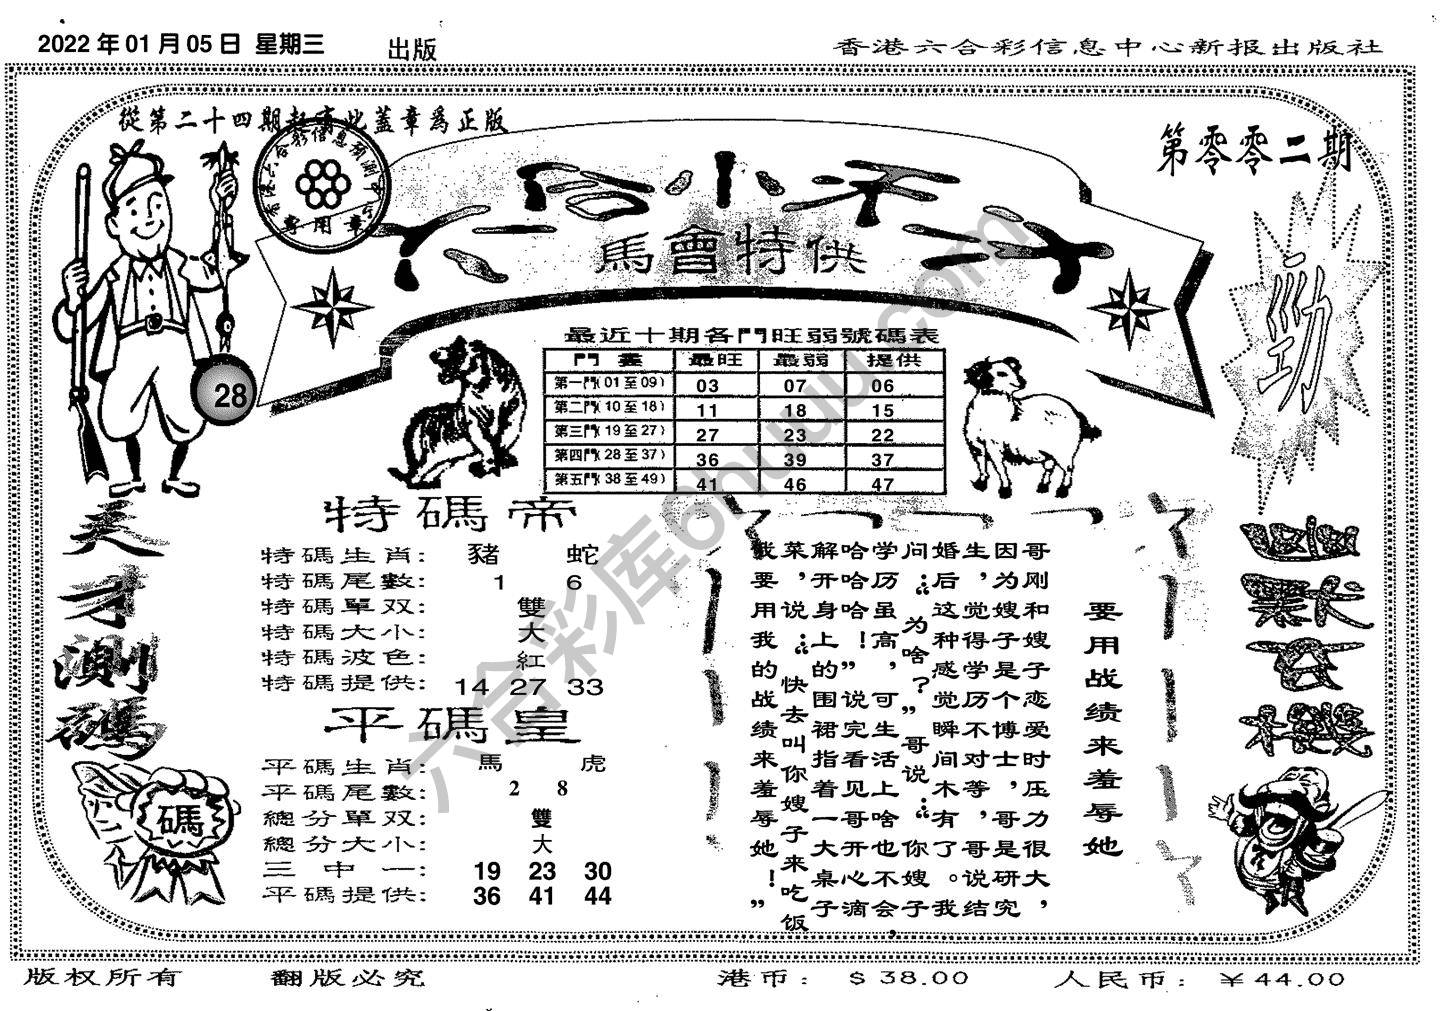 2022 年 01 月 05 日 星期三
出版
香港六合彩信息中心新报出版社
從第二十四期起有此蓋章爲正版
第零零二期
專用章
馬會特供
勁
28
最近十期各門旺弱號碼表
最旺 最弱 提供
第一門( 01 至 09 ) 03 07 06
第二門( 10 至 18 ) 11 18 15
第三門( 19 至 27 ) 27 23 22
第四門( 28 至 37 ) 36 39 37
第五門( 38 至 49 ) 41 46 47
天才測碼
碼
特碼帝
特碼生肖: 豬 蛇
特碼尾數: 1 6
特碼單双: 雙
特碼大小: 大
特碼波色: 紅
特碼提供: 14 27 33
平碼皇
平碼生肖: 馬 虎
平碼尾數: 2 8
總分單双: 雙
總分大小: 大
三中一: 19 23 30
平碼提供: 36 41 44
要用战绩来羞辱她
哥刚和嫂子恋爱时压力很大,
因为嫂子是个博士,哥是研究
生,觉得学历不对等,哥说结
婚后这种感觉瞬间木有了。我
问:“为啥?”哥说:“你嫂子
学历虽高,可生活上啥也不会,
哈哈哈!”说完看见哥开心滴
解开身上的围裙指着一大桌子
菜,说:“快去叫你嫂子来吃饭
我要用我的战绩来羞辱她!”
六合彩库6huuu.com
版权所有
翻版必究
港币: $ 38.00
人民币: ¥ 44.00